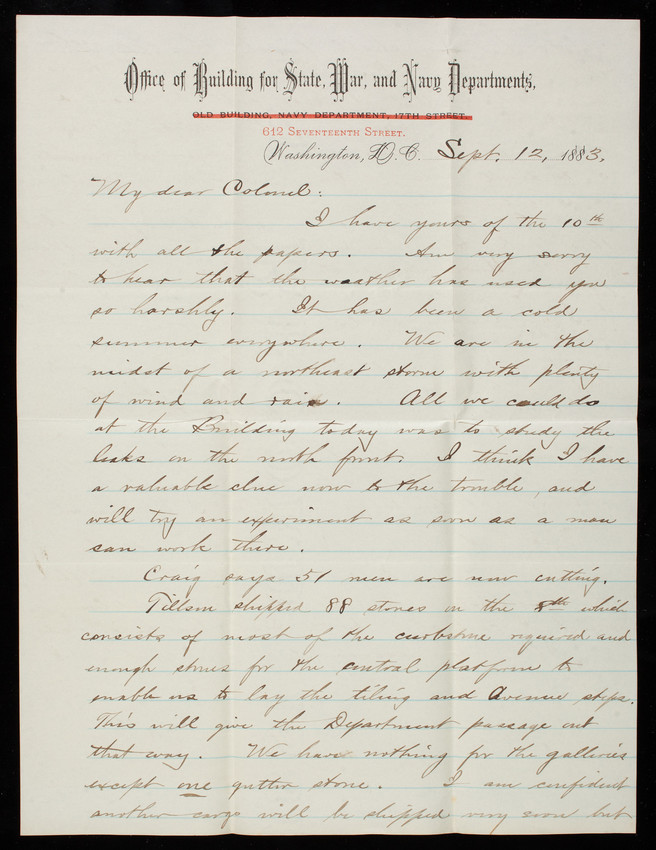 Office of Building for State, War, and Navy Departments,
OLD BUILDING, NAVY DEPARTMENT, 17TH STREET.
612 SEVENTEENTH STREET.
Washington, D.C. Sept. 12, 1883.
My dear Colonel:
I have yours of the 10th
with all the papers. Am very sorry
to hear that the weather has used you
so harshly. It has been a cold
summer everywhere. We are in the
midst of a northeast storm with plenty
of wind and rain. All we could do
at the Building today was to study the
leaks on the north front. I think I have
a valuable clue now to the trouble, and
will try an experiment as soon as a man
can work there.
Craig says 51 men are now cutting.
Tillson shipped 88 stones on the 8th which
consists of most of the curbstone required and
enough stones for the central platform to
enable us to lay the tiling and Avenue steps.
This will give the Department passage out
that way. We have nothing for the galleries
except one gutter stone. I am confident
another cargo will be shipped very soon but